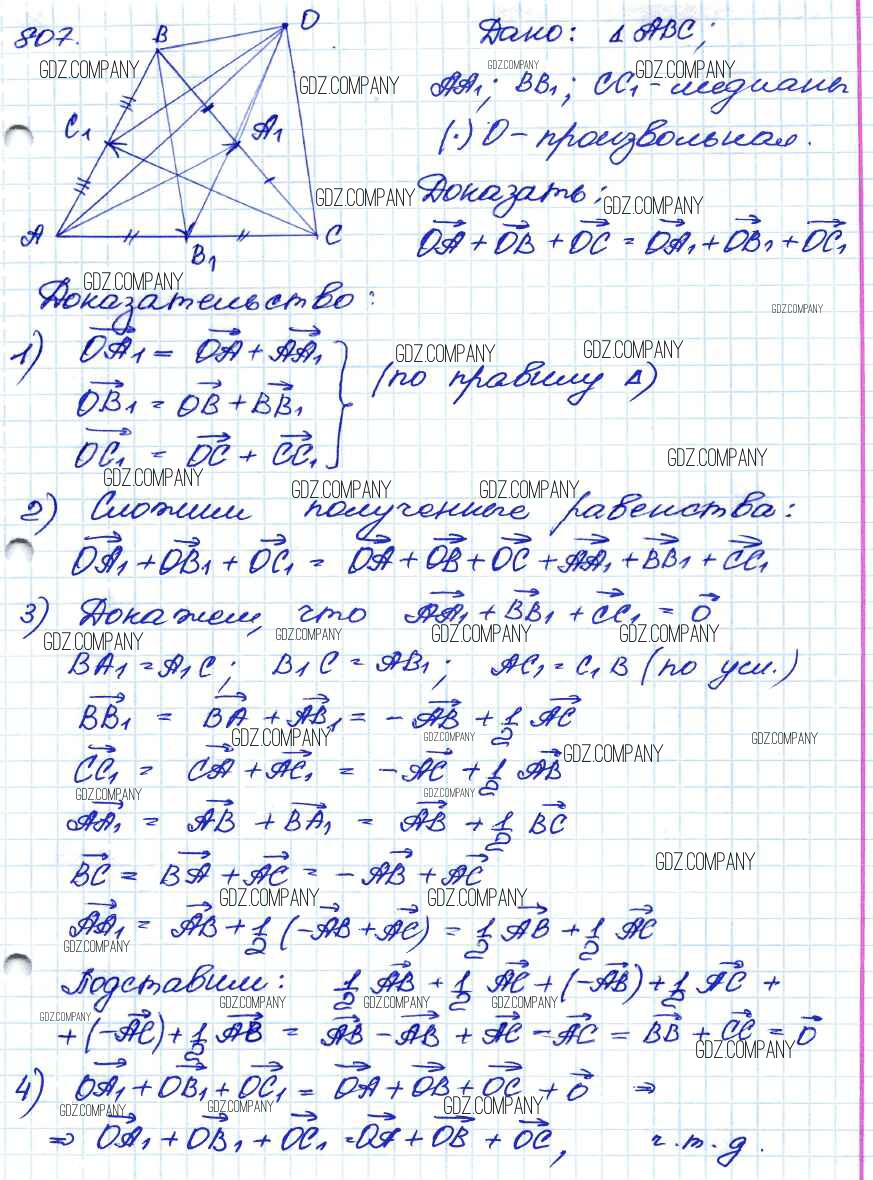 807.
B
O
C₁
A₁
A
B₁
C
Дано: Δ ABC;
AA₁; BB₁; CC₁ - медианы
(·) O - произвольная.
Доказать:
OA + OB + OC = OA₁ + OB₁ + OC₁
Доказательство:
1) OA₁ = OA + AA₁
OB₁ = OB + BB₁
OC₁ = OC + CC₁
} (по правилу Δ)
2) Сложим полученные равенства:
OA₁ + OB₁ + OC₁ = OA + OB + OC + AA₁ + BB₁ + CC₁
3) Докажем, что AA₁ + BB₁ + CC₁ = 0
BA₁ = A₁C; B₁C = AB₁; AC₁ = C₁B (по усл.)
BB₁ = BA + AB₁ = - AB + 1/2 AC
CC₁ = CA + AC₁ = - AC + 1/2 AB
AA₁ = AB + BA₁ = AB + 1/2 BC
BC = BA + AC = - AB + AC
AA₁ = AB + 1/2 (-AB + AC) = 1/2 AB + 1/2 AC
Подставим: 1/2 AB + 1/2 AC + (-AB) + 1/2 AC +
+ (-AC) + 1/2 AB = AB - AB + AC - AC = BB + CC = 0
4) OA₁ + OB₁ + OC₁ = OA + OB + OC + 0 ⇒
⇒ OA₁ + OB₁ + OC₁ = OA + OB + OC, ч.т.д.
GDZ.COMPANY